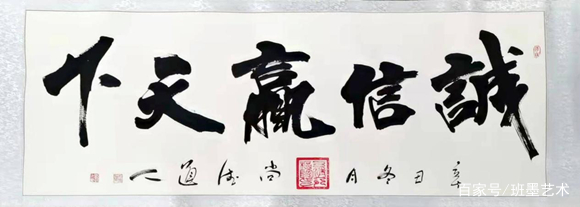 誠信贏天下
辛丑冬月 尚道人
百家号/班墨艺术